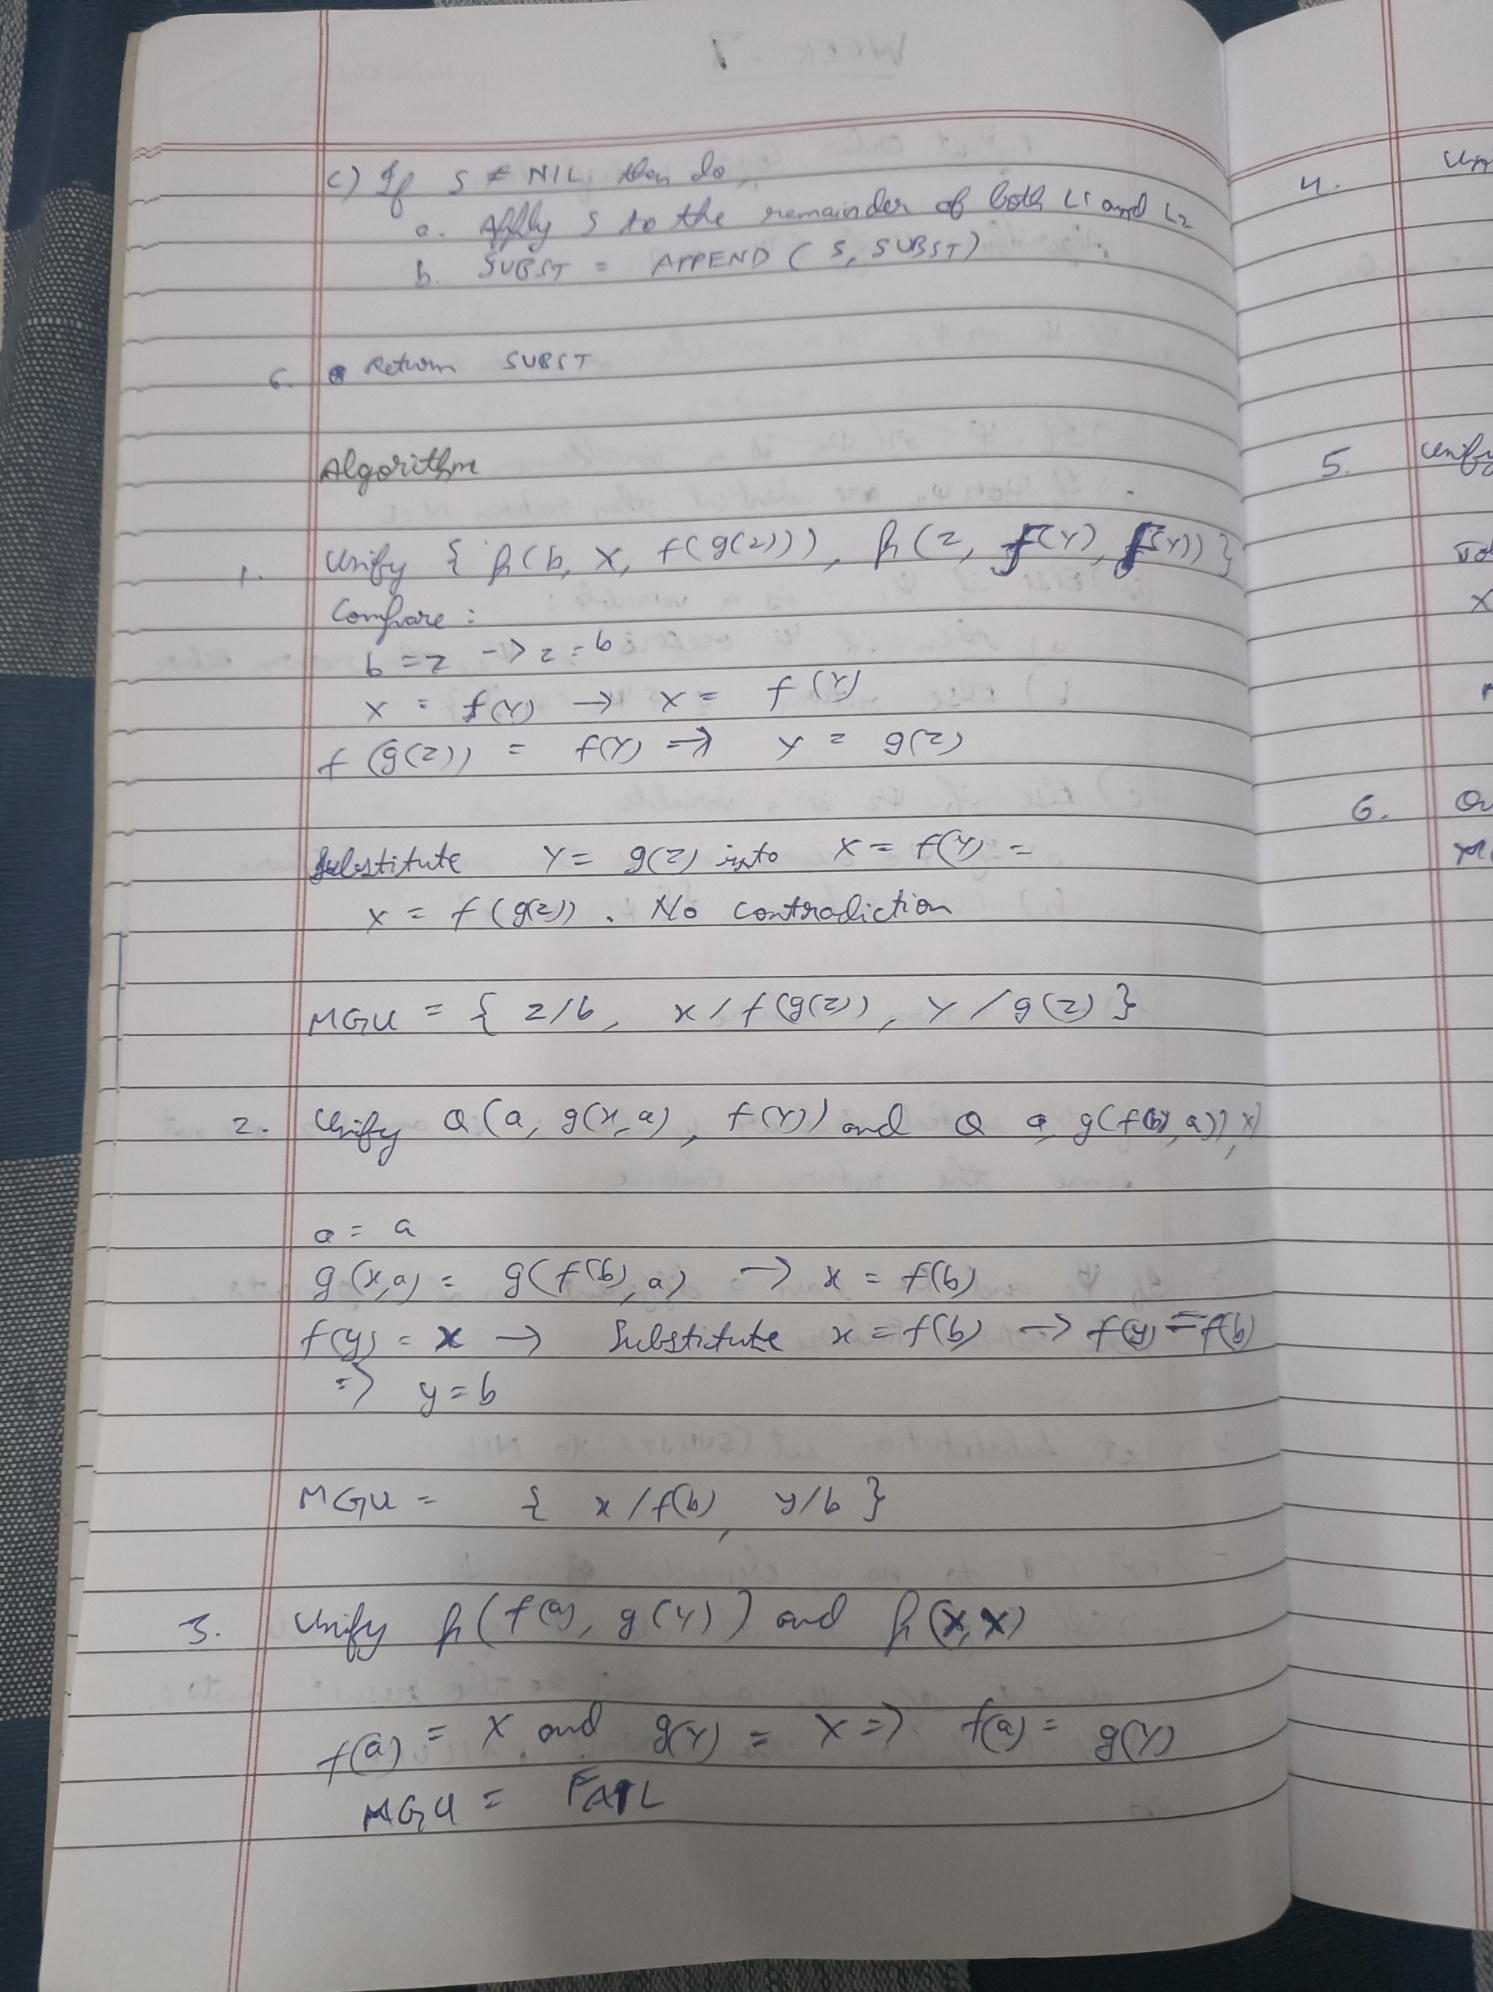 c) If S ≠ NIL then do
a. Apply S to the remainder of both L1 and L2
b. SUBST = APPEND (S, SUBST)
6. Return SUBST
Algorithm
1. Unify { p(b, X, f(g(z))), p(z, f(Y), f(Y)) }
Compare :
b = z -> z = b
X = f(Y) → X = f(Y)
f(g(z)) = f(Y) → Y = g(z)
Substitute Y = g(z) into X = f(Y) =
X = f(g(z)). No contradiction
MGU = { z/b, x/f(g(z)), Y/g(z) }
2. Unify Q(a, g(x,a), f(Y)) and Q a, g(f(b),a)), x)
a = a
g(x,a) = g(f(b), a) → x = f(b)
f(y) = x → Substitute x = f(b) → f(y) = f(b)
=> y = b
MGU = { x/f(b), y/b }
3. Unify p(f(a), g(Y)) and p(X, X)
f(a) = X and g(Y) = X => f(a) = g(Y)
MGU = FAIL
4.
5. Unify
6.